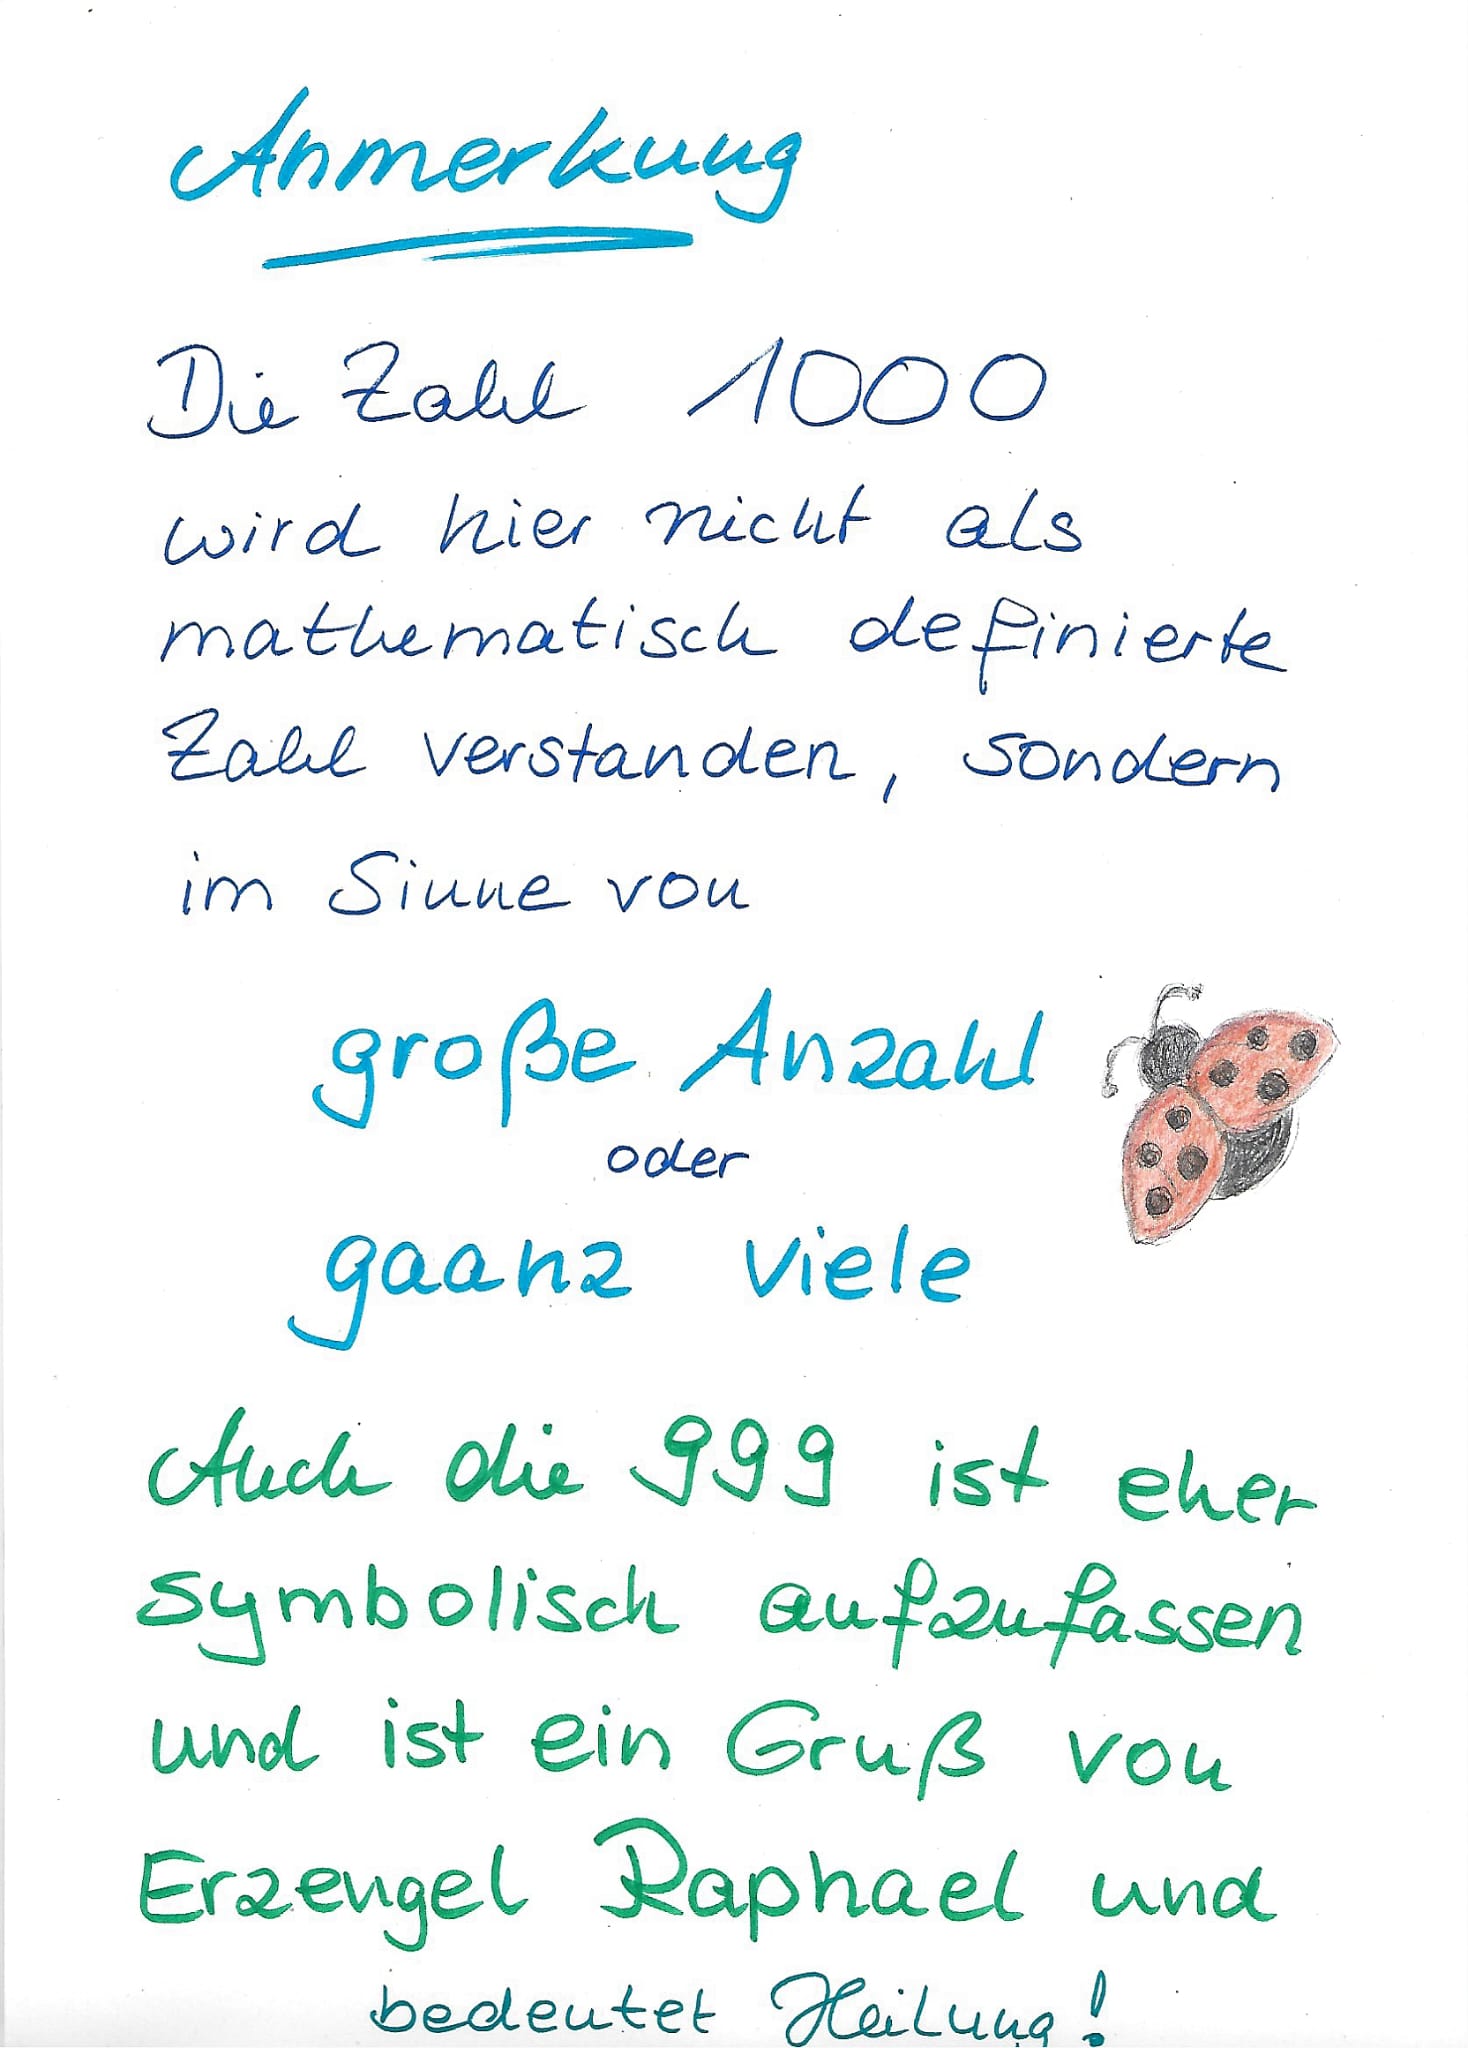 Anmerkung
Die Zahl 1000
wird hier nicht als
mathematisch definierte
Zahl verstanden, sondern
im Sinne von
große Anzahl
oder
gaanz viele
Auch die 999 ist eher
symbolisch aufzufassen
und ist ein Gruß von
Erzengel Raphael und
bedeutet Heilung!